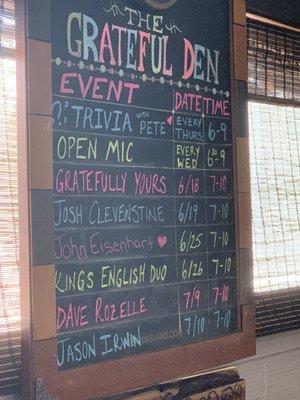 THE
GRATEFUL DEN
EVENT DATE TIME
?'? TRIVIA WITH PETE EVERY THURS 6-9
OPEN MIC EVERY WED 6-9
GRATEFULLY YOURS 6/18 7-10
JOSH CLEVENSTINE 6/19 7-10
JOHN EISENHART 6/25 7-10
KINGS ENGLISH DUO 6/26 7-10
DAVE ROZELLE 7/9 7-10
JASON IRWIN 7/10 7-10